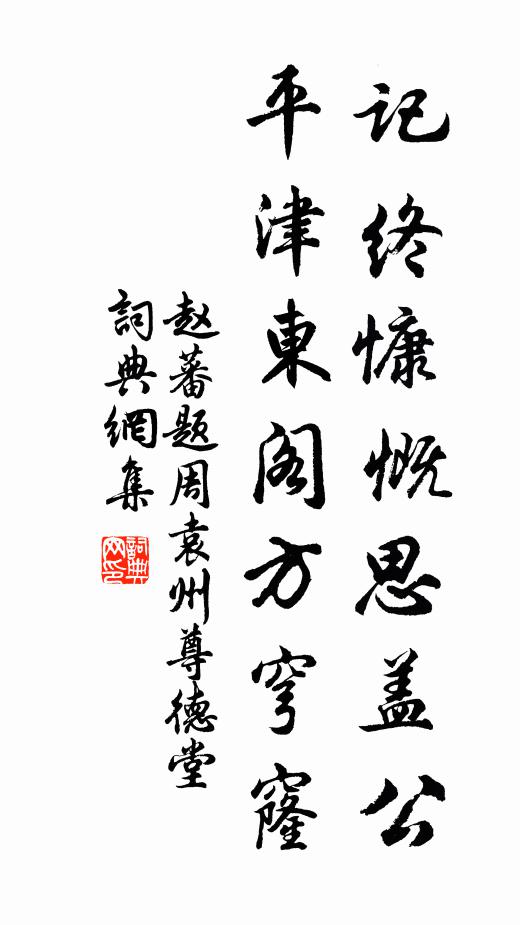 记终慷慨思盖公
平津東阁方穹窿
赵蕃题周袁州尊德堂
詞典網集
詞典网印